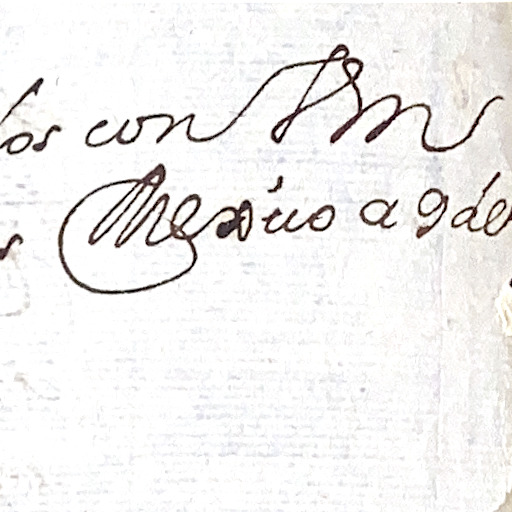 los con
Mexico a 9 de